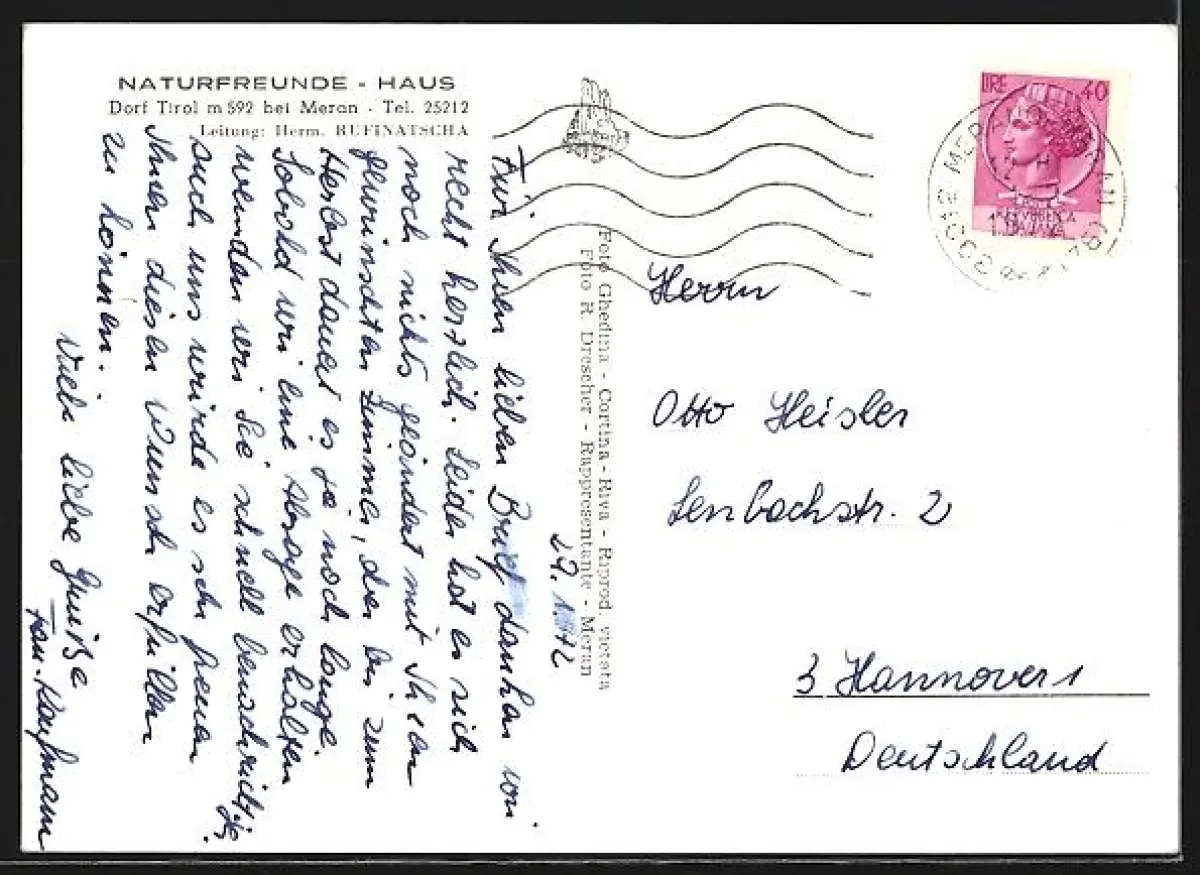 NATURFREUNDE - HAUS
Dorf Tirol m 592 bei Meran - Tel. 25212
Leitung: Herm. RUFINATSCHA
Für Ihren lieben Brief danken wir
recht herzlich. Leider hat es sich
noch nichts geändert mit Ihren
gewünschten Zimmer, den bis zum
Herbst dauert es ja noch lange.
Sobald wir eine Absage erhalten
werden wir Sie schnell benachrichtigen.
auch uns würde es sehr freuen
Ihnen diesen Wunsch erfüllen
zu können.
Viele liebe Grüße
Fam. Kaufmann
29.1.72
Foto Ghedina - Cortina - Riva - Riprod. vietata
Foto R. Drescher - Rappresentante - Meran
LIRE 40
REPUBBLICA
ITALIANA
39012 MERANO
Herrn
Otto Heisler
Lenbachstr. 2
3 Hannover 1
Deutschland